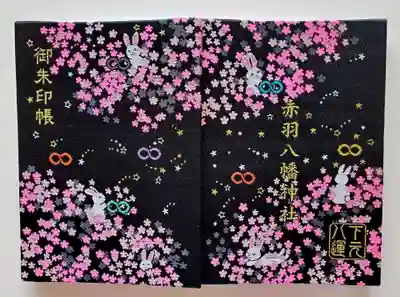 御朱印帳
赤羽八幡神社
下元
八運